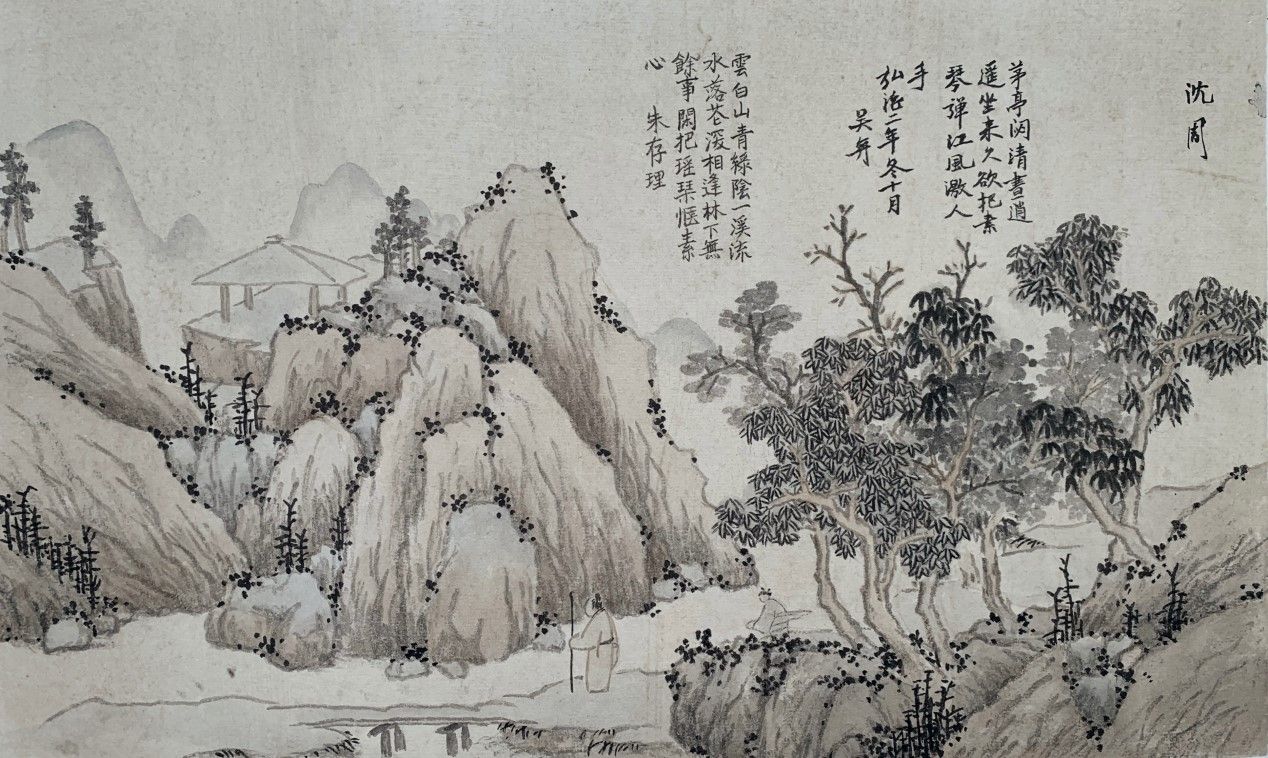 沈周
茅亭清晝逍
遥坐来久欲把素
琴弹江風激人
手
弘治二年冬十月
吴
雲白山青綠陰一溪流
水落花深相逢林下無
餘事閑把瑶琴愜素
心 朱存理